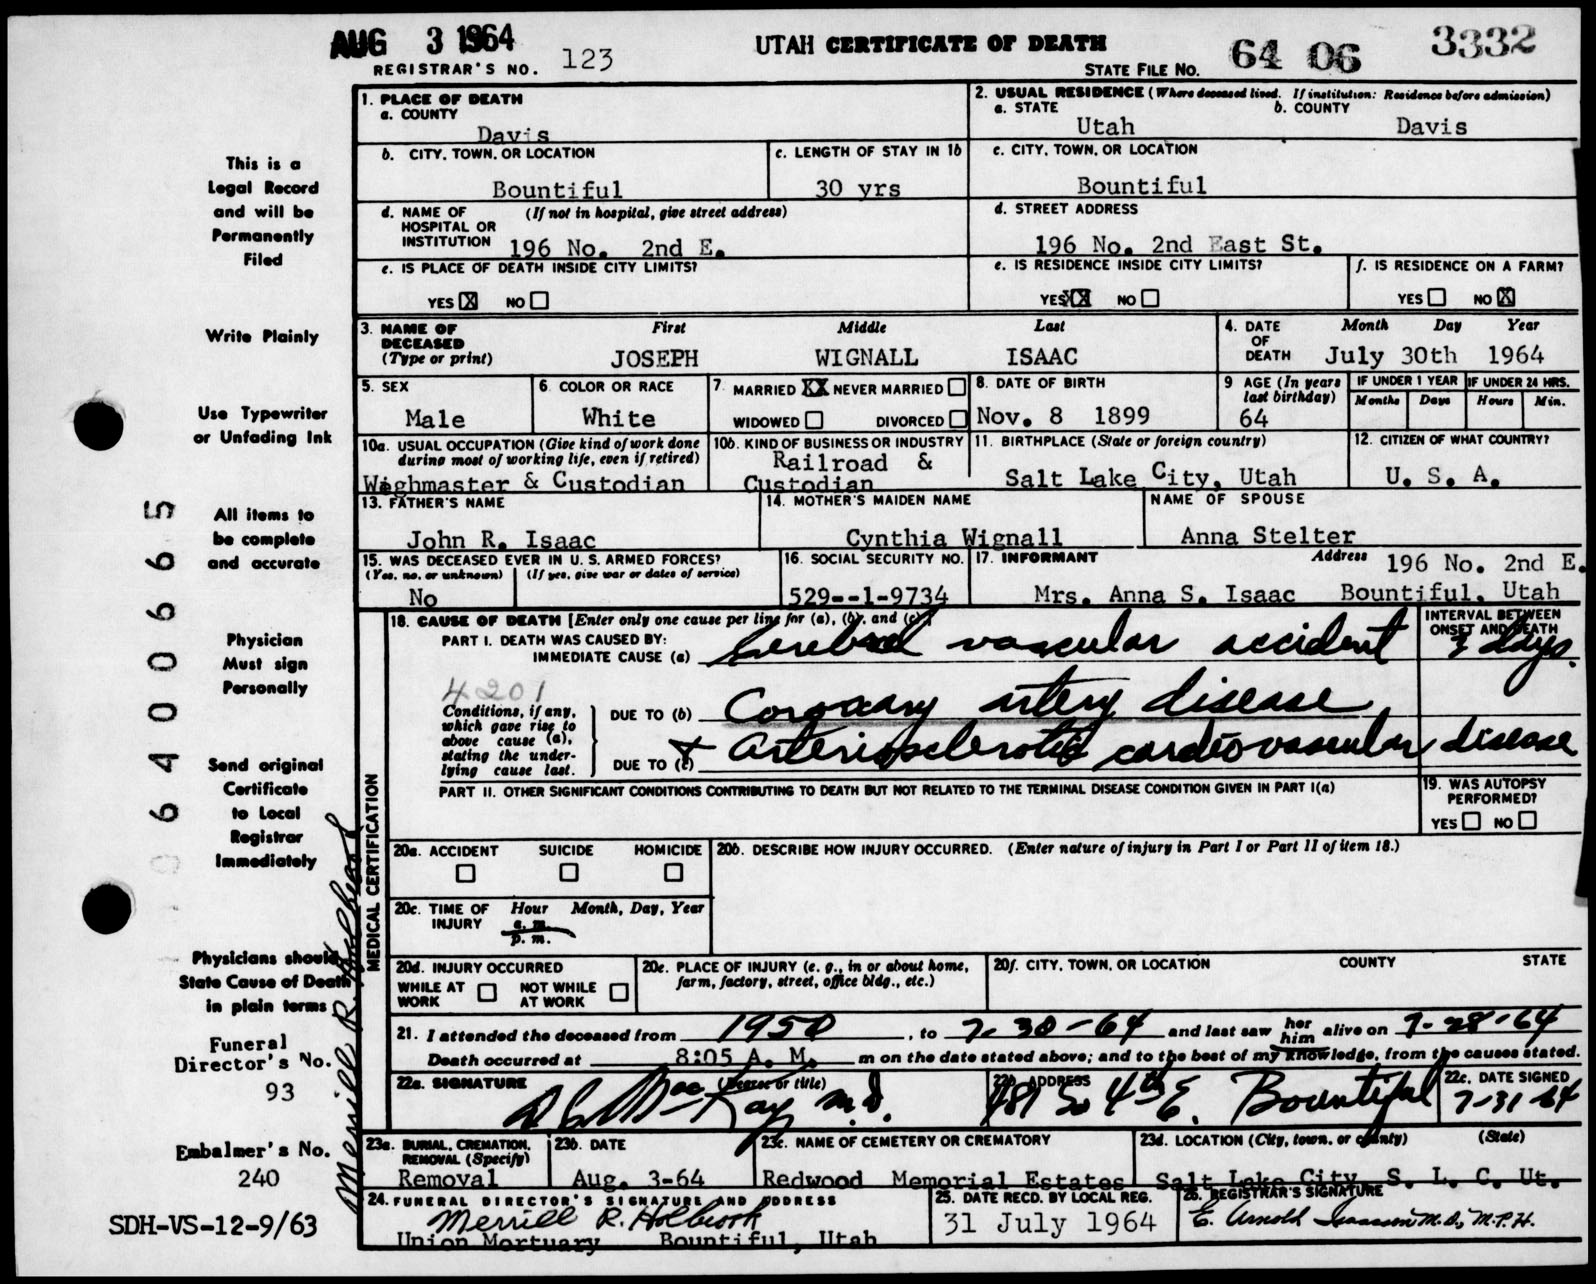 AUG 3 1964
REGISTRAR'S NO. 123
UTAH CERTIFICATE OF DEATH
STATE FILE NO. 64 06 3332
This is a
Legal Record
and will be
Permanently
Filed
Write Plainly
Use Typewriter
or Unfading Ink
All items to
be complete
and accurate
Physician
Must sign
Personally
Send original
Certificate
to Local
Registrar
Immediately
Physicians should
State Cause of Death
in plain terms
Funeral
Director's No.
93
Embalmer's No.
240
SDH-VS-12-9/63
64 00665
Merrill R. Holbrook
1. PLACE OF DEATH
a. COUNTY
Davis
2. USUAL RESIDENCE (Where deceased lived. If institution: Residence before admission)
a. STATE b. COUNTY
Utah Davis
b. CITY, TOWN, OR LOCATION
Bountiful
c. LENGTH OF STAY IN 1b
30 yrs
c. CITY, TOWN, OR LOCATION
Bountiful
d. NAME OF (If not in hospital, give street address)
HOSPITAL OR
INSTITUTION 196 No. 2nd E.
d. STREET ADDRESS
196 No. 2nd East St.
e. IS PLACE OF DEATH INSIDE CITY LIMITS?
YES X NO
e. IS RESIDENCE INSIDE CITY LIMITS?
YES XX NO
f. IS RESIDENCE ON A FARM?
YES NO X
3. NAME OF
DECEASED
(Type or print)
First Middle Last
JOSEPH WIGNALL ISAAC
4. DATE
OF
DEATH
Month Day Year
July 30th 1964
5. SEX
Male
6. COLOR OR RACE
White
7. MARRIED XX NEVER MARRIED
WIDOWED DIVORCED
8. DATE OF BIRTH
Nov. 8 1899
9 AGE (In years
last birthday)
64
IF UNDER 1 YEAR
Months Days
IF UNDER 24 HRS.
Hours Min.
10a. USUAL OCCUPATION (Give kind of work done
during most of working life, even if retired)
Wighmaster & Custodian
10b. KIND OF BUSINESS OR INDUSTRY
Railroad &
Custodian
11. BIRTHPLACE (State or foreign country)
Salt Lake City, Utah
12. CITIZEN OF WHAT COUNTRY?
U. S. A.
13. FATHER'S NAME
John R. Isaac
14. MOTHER'S MAIDEN NAME
Cynthia Wignall
NAME OF SPOUSE
Anna Stelter
15. WAS DECEASED EVER IN U. S. ARMED FORCES?
(Yes, no, or unknown) (If yes, give war or dates of service)
No
16. SOCIAL SECURITY NO.
529--1-9734
17. INFORMANT Address 196 No. 2nd E.
Mrs. Anna S. Isaac Bountiful, Utah
MEDICAL CERTIFICATION
18. CAUSE OF DEATH [Enter only one cause per line for (a), (b), and (c).
PART I. DEATH WAS CAUSED BY:
IMMEDIATE CAUSE (a) Cerebral vascular accident
INTERVAL BETWEEN
ONSET AND DEATH
3 days.
4201
Conditions, if any,
which gave rise to
above cause (a),
stating the under-
lying cause last.
DUE TO (b) Coronary artery disease
DUE TO (c) + Arteriosclerotic cardiovascular disease
PART II. OTHER SIGNIFICANT CONDITIONS CONTRIBUTING TO DEATH BUT NOT RELATED TO THE TERMINAL DISEASE CONDITION GIVEN IN PART I(a)
19. WAS AUTOPSY
PERFORMED?
YES NO
20a. ACCIDENT SUICIDE HOMICIDE
20b. DESCRIBE HOW INJURY OCCURRED. (Enter nature of injury in Part I or Part II of item 18.)
20c. TIME OF Hour Month, Day, Year
INJURY a. m.
p. m.
20d. INJURY OCCURRED
WHILE AT NOT WHILE
WORK AT WORK
20e. PLACE OF INJURY (e. g., in or about home,
farm, factory, street, office bldg., etc.)
20f. CITY, TOWN, OR LOCATION COUNTY STATE
21. I attended the deceased from 1950, to 7-30-64 and last saw her him alive on 7-28-64
Death occurred at 8:05 A. M. m on the date stated above; and to the best of my knowledge, from the causes stated.
22a. SIGNATURE (Degree or title)
MacKay M.D.
22b. ADDRESS
481 So 4th E. Bountiful
22c. DATE SIGNED
7-31-64
23a. BURIAL, CREMATION,
REMOVAL (Specify)
Removal
23b. DATE
Aug. 3-64
23c. NAME OF CEMETERY OR CREMATORY
Redwood Memorial Estates
23d. LOCATION (City, town, or county) (State)
Salt Lake City S. L. C. Ut.
24. FUNERAL DIRECTOR'S SIGNATURE AND ADDRESS
Merrill R. Holbrook
Union Mortuary Bountiful, Utah
25. DATE RECD. BY LOCAL REG.
31 July 1964
26. REGISTRAR'S SIGNATURE
E. Arnold Isaacson M.D., M.P.H.